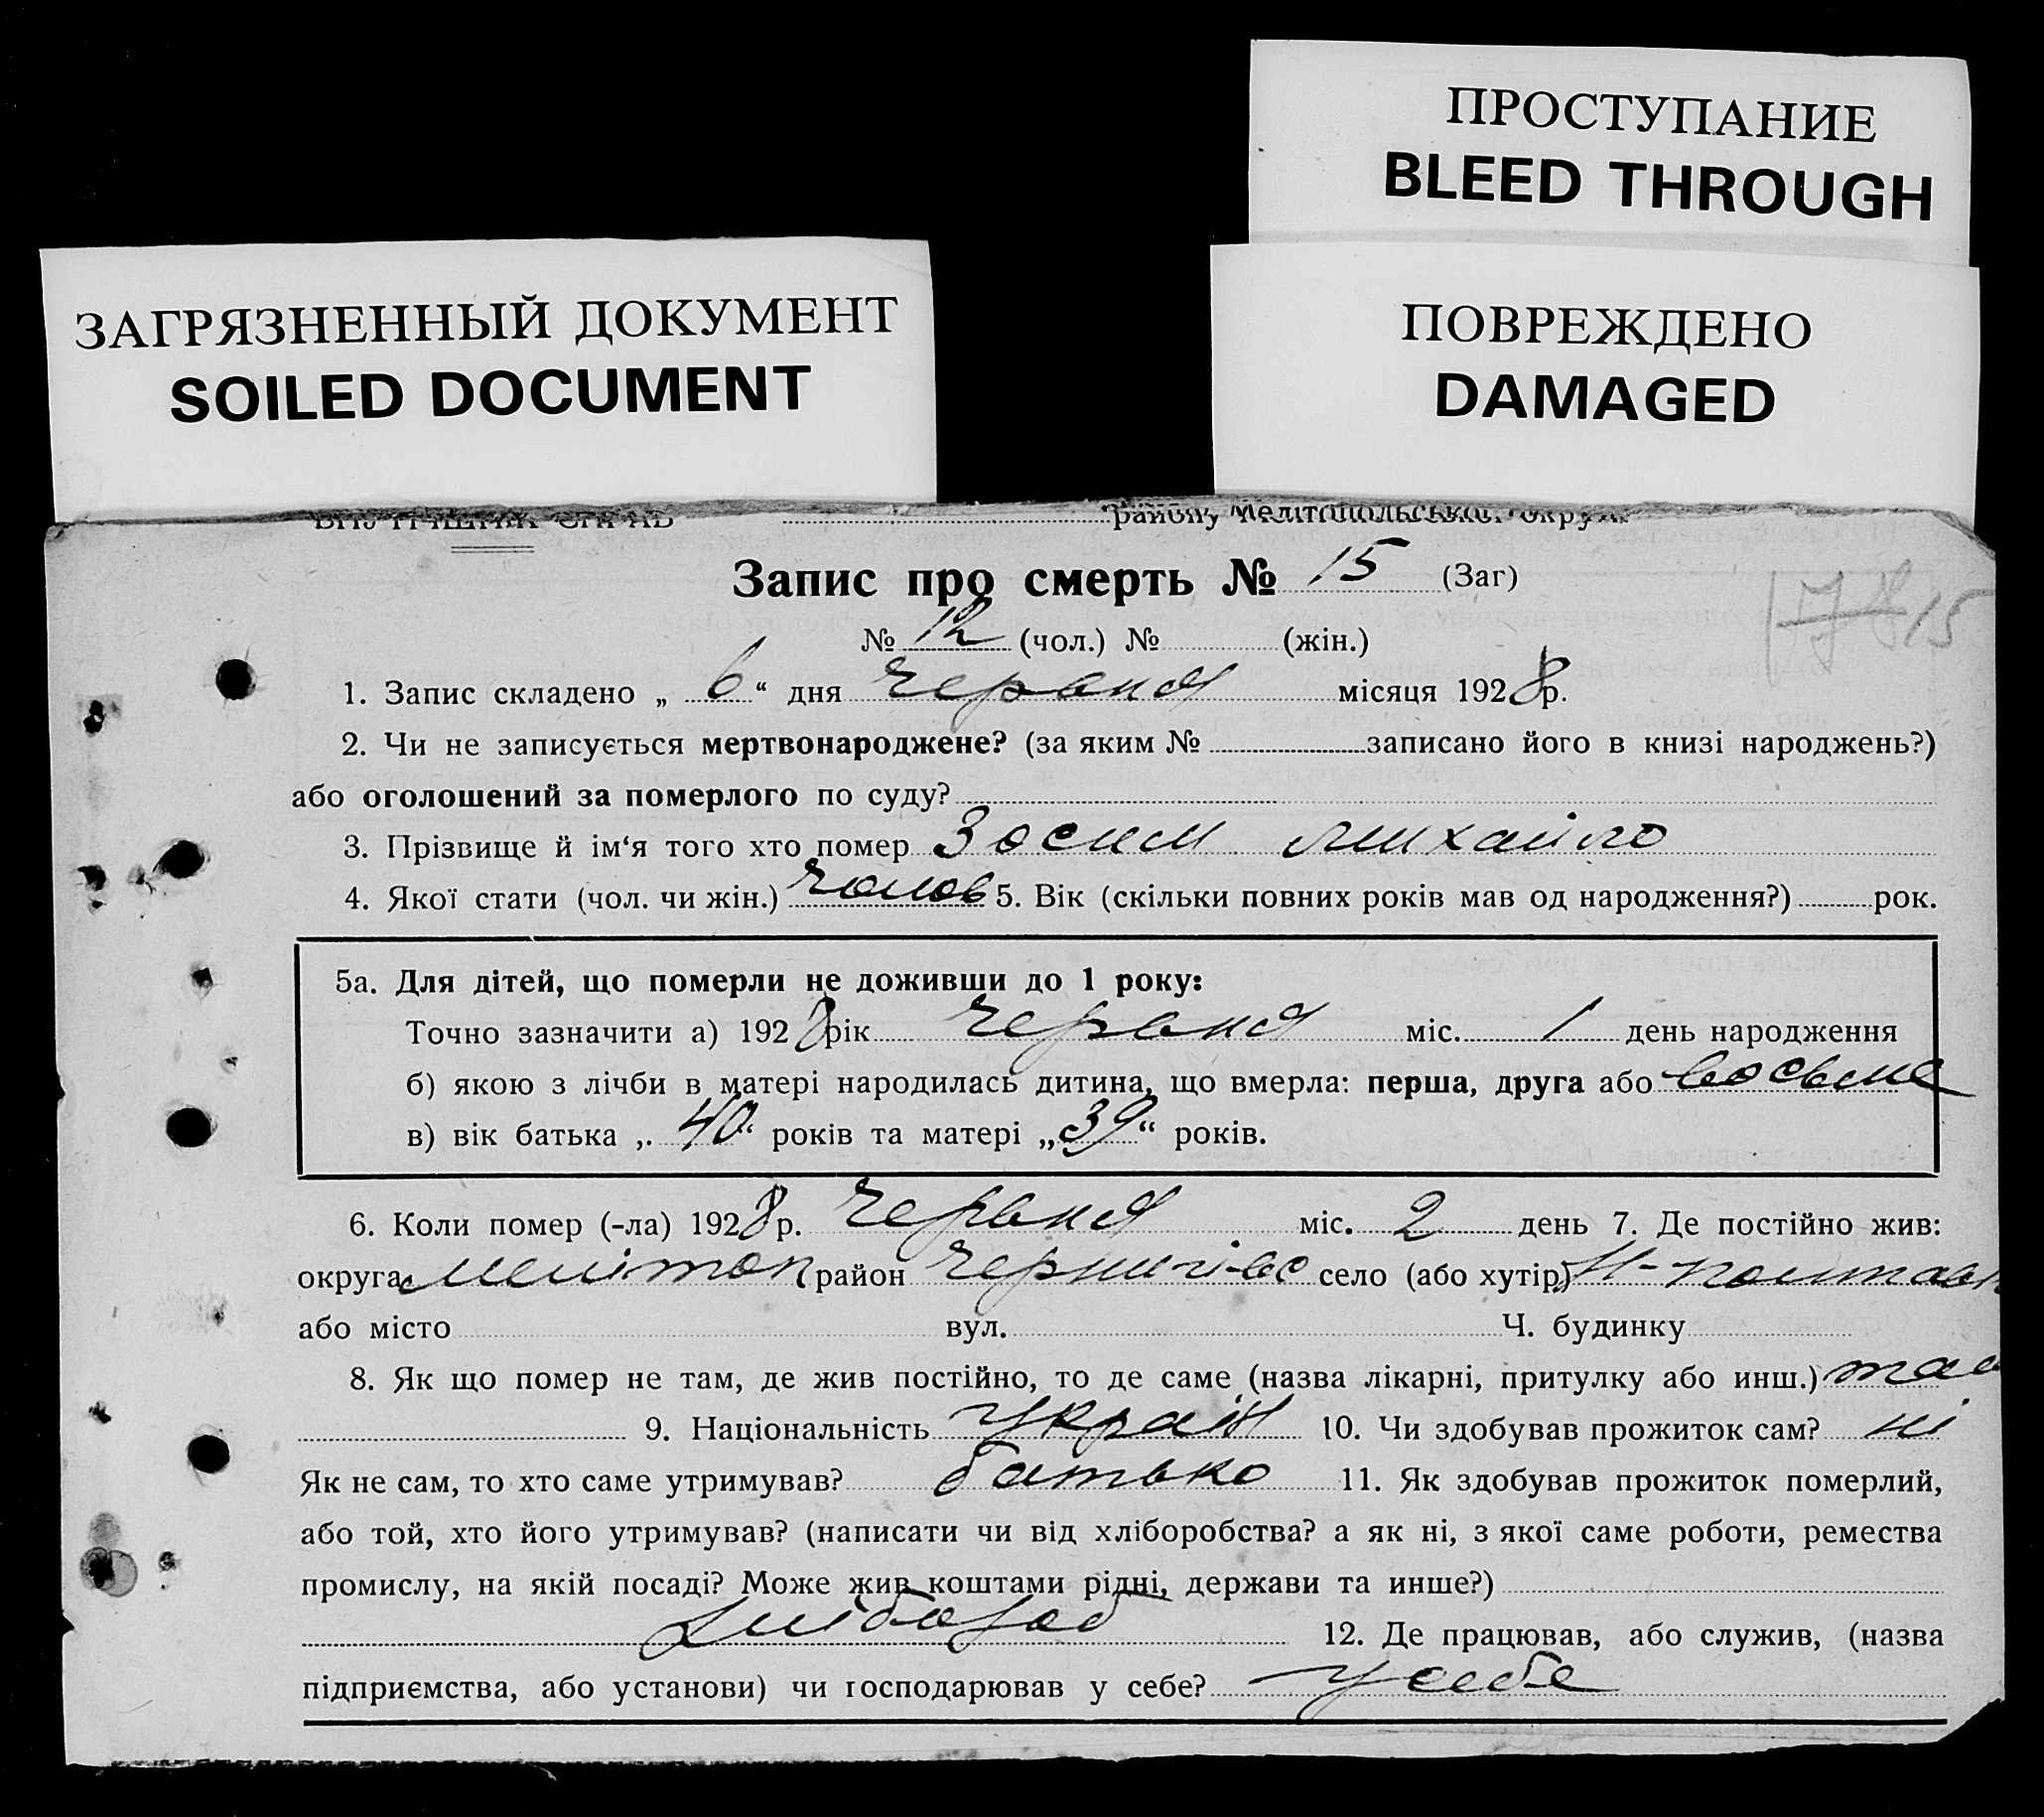 ПРОСТУПАНИЕ
BLEED THROUGH
ЗАГРЯЗНЕННЫЙ ДОКУМЕНТ
SOILED DOCUMENT
ПОВРЕЖДЕНО
DAMAGED
району Мелітопольської округи
Запис про смерть № 15 (Заг)
15
№ 12 (чол.) № (жін.)
1. Запис складено „ 6 “ дня червня місяця 1928 р.
2. Чи не записується мертвонароджене? (за яким № записано його в книзі народжень?)
або оголошений за померлого по суду?
3. Прізвище й ім‘я того хто помер Зосим Михайло
4. Якої стати (чол. чи жін.) чолов 5. Вік (скільки повних років мав од народження?) рок.
5а. Для дітей, що померли не доживши до 1 року:
Точно зазначити а) 1928 рік червня міс. 1 день народження
б) якою з лічби в матері народилась дитина, що вмерла: перша, друга або восьме
в) вік батька „ 40 “ років та матері „ 39 “ років.
6. Коли помер (-ла) 1928 р. червня міс. 2 день 7. Де постійно жив:
округа Мелітоп район Чернигівс село (або хутір) Н-Полтавк
або місто вул. Ч. будинку
8. Як що помер не там, де жив постійно, то де саме (назва лікарні, притулку або инш.) там
9. Національність Україн 10. Чи здобував прожиток сам? ні
Як не сам, то хто саме утримував? батько 11. Як здобував прожиток померлий,
або той, хто його утримував? (написати чи від хліборобства? а як ні, з якої саме роботи, ремества
промислу, на якій посаді? Може жив коштами рідні, держави та инше?)
Хлібороб 12. Де працював, або служив, (назва
підприємства, або установи) чи господарював у себе? у себе